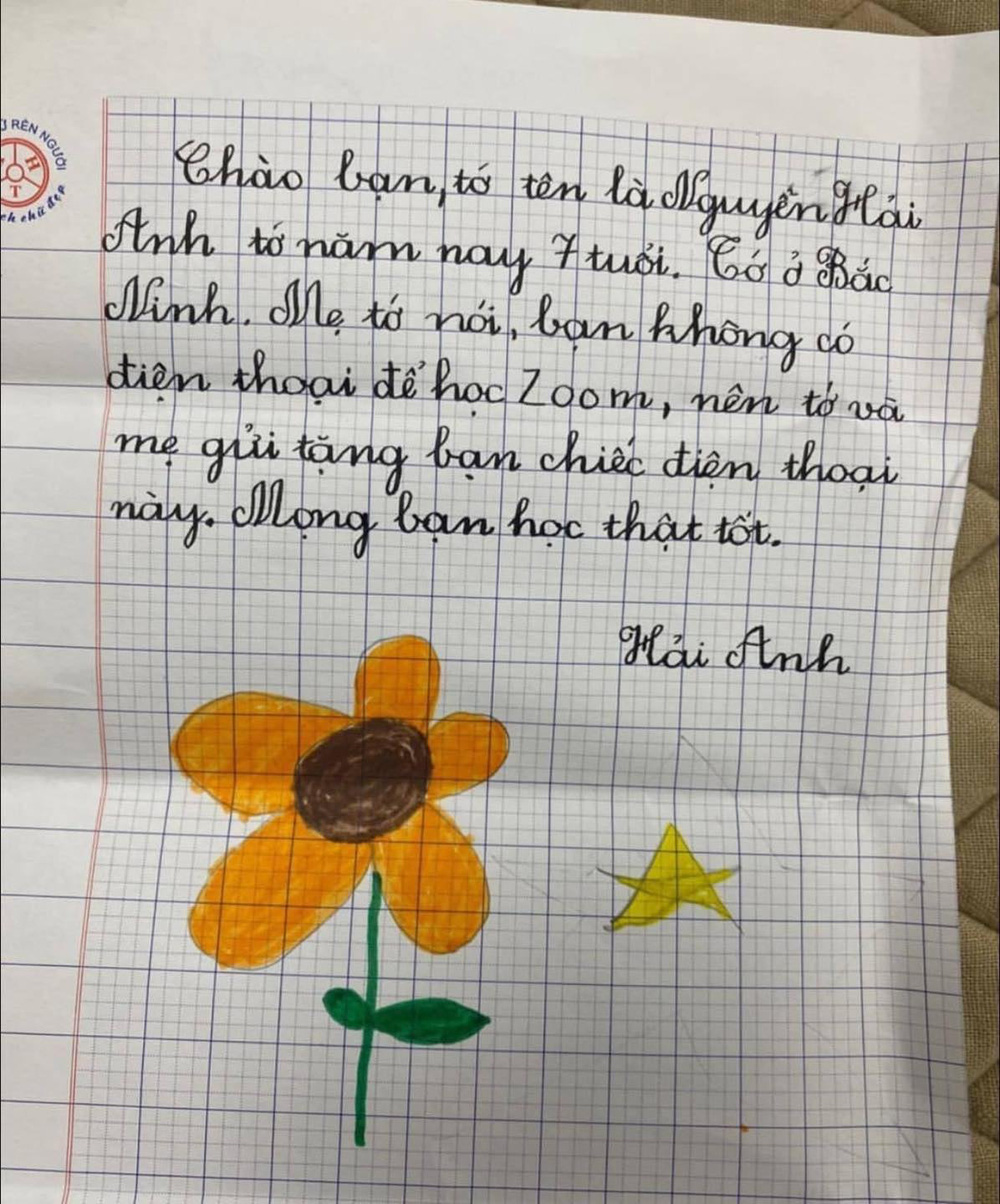 Ữ RÈN NGƯỜI
H
T
ch chữ đẹp
Chào bạn, tớ tên là Nguyễn Hải
Anh tớ năm nay 7 tuổi. Tớ ở Bắc
Ninh. Mẹ tớ nói, bạn không có
điện thoại để học Zoom, nên tớ và
mẹ gửi tặng bạn chiếc điện thoại
này. Mong bạn học thật tốt.
Hải Anh